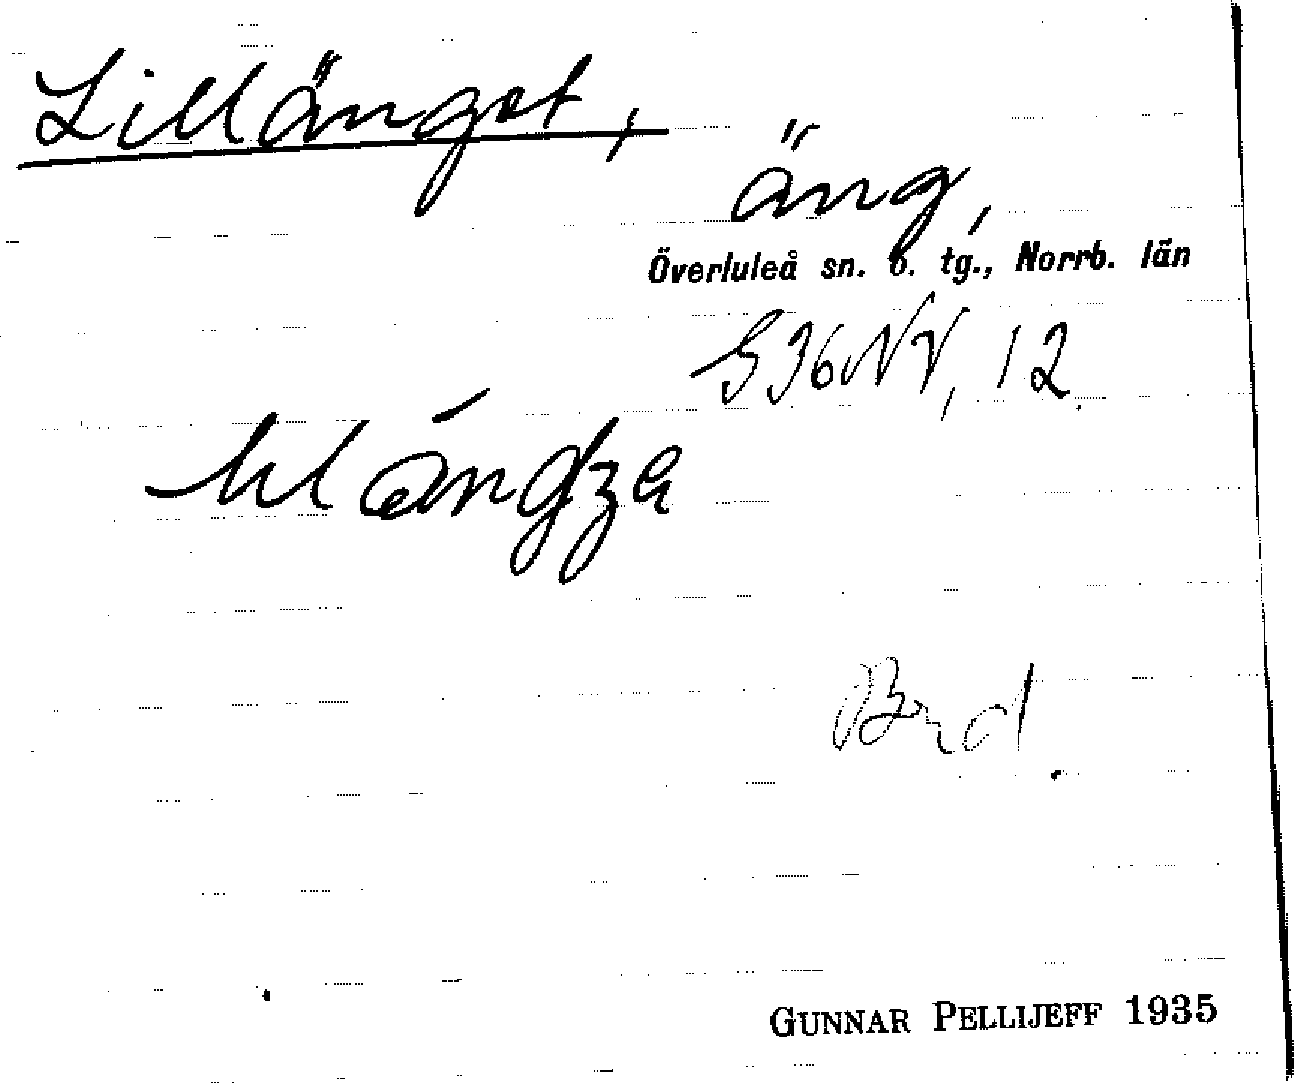 Lillänget,
äng,
Överluleå sn. o. tg., Norrb. län
S36NV, 12.
GUNNAR PELLIJEFF 1935